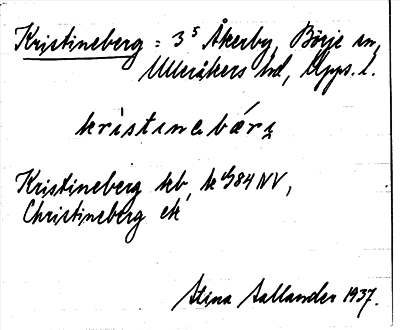 Kristineberg = 3⁵ Åkerby, Börje sn,
Ulleråkers hd, Upps. l.
kristinəbærj
Kristineberg kb, k 84 NV,
Christineberg ek
Stina Sallander 1937.